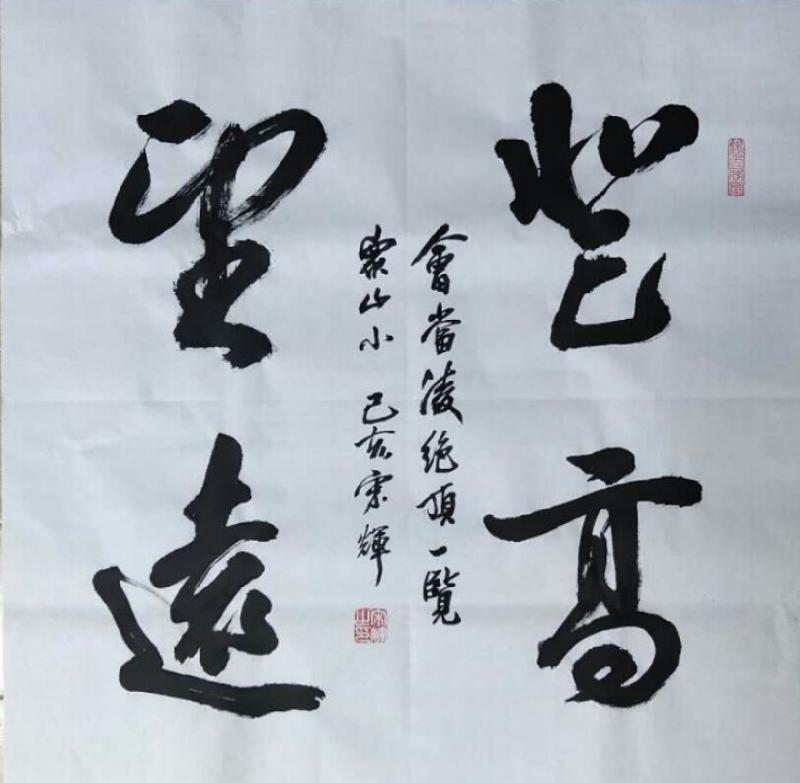 登高
望遠
會當凌絶頂一覽
眾山小 己亥宗輝